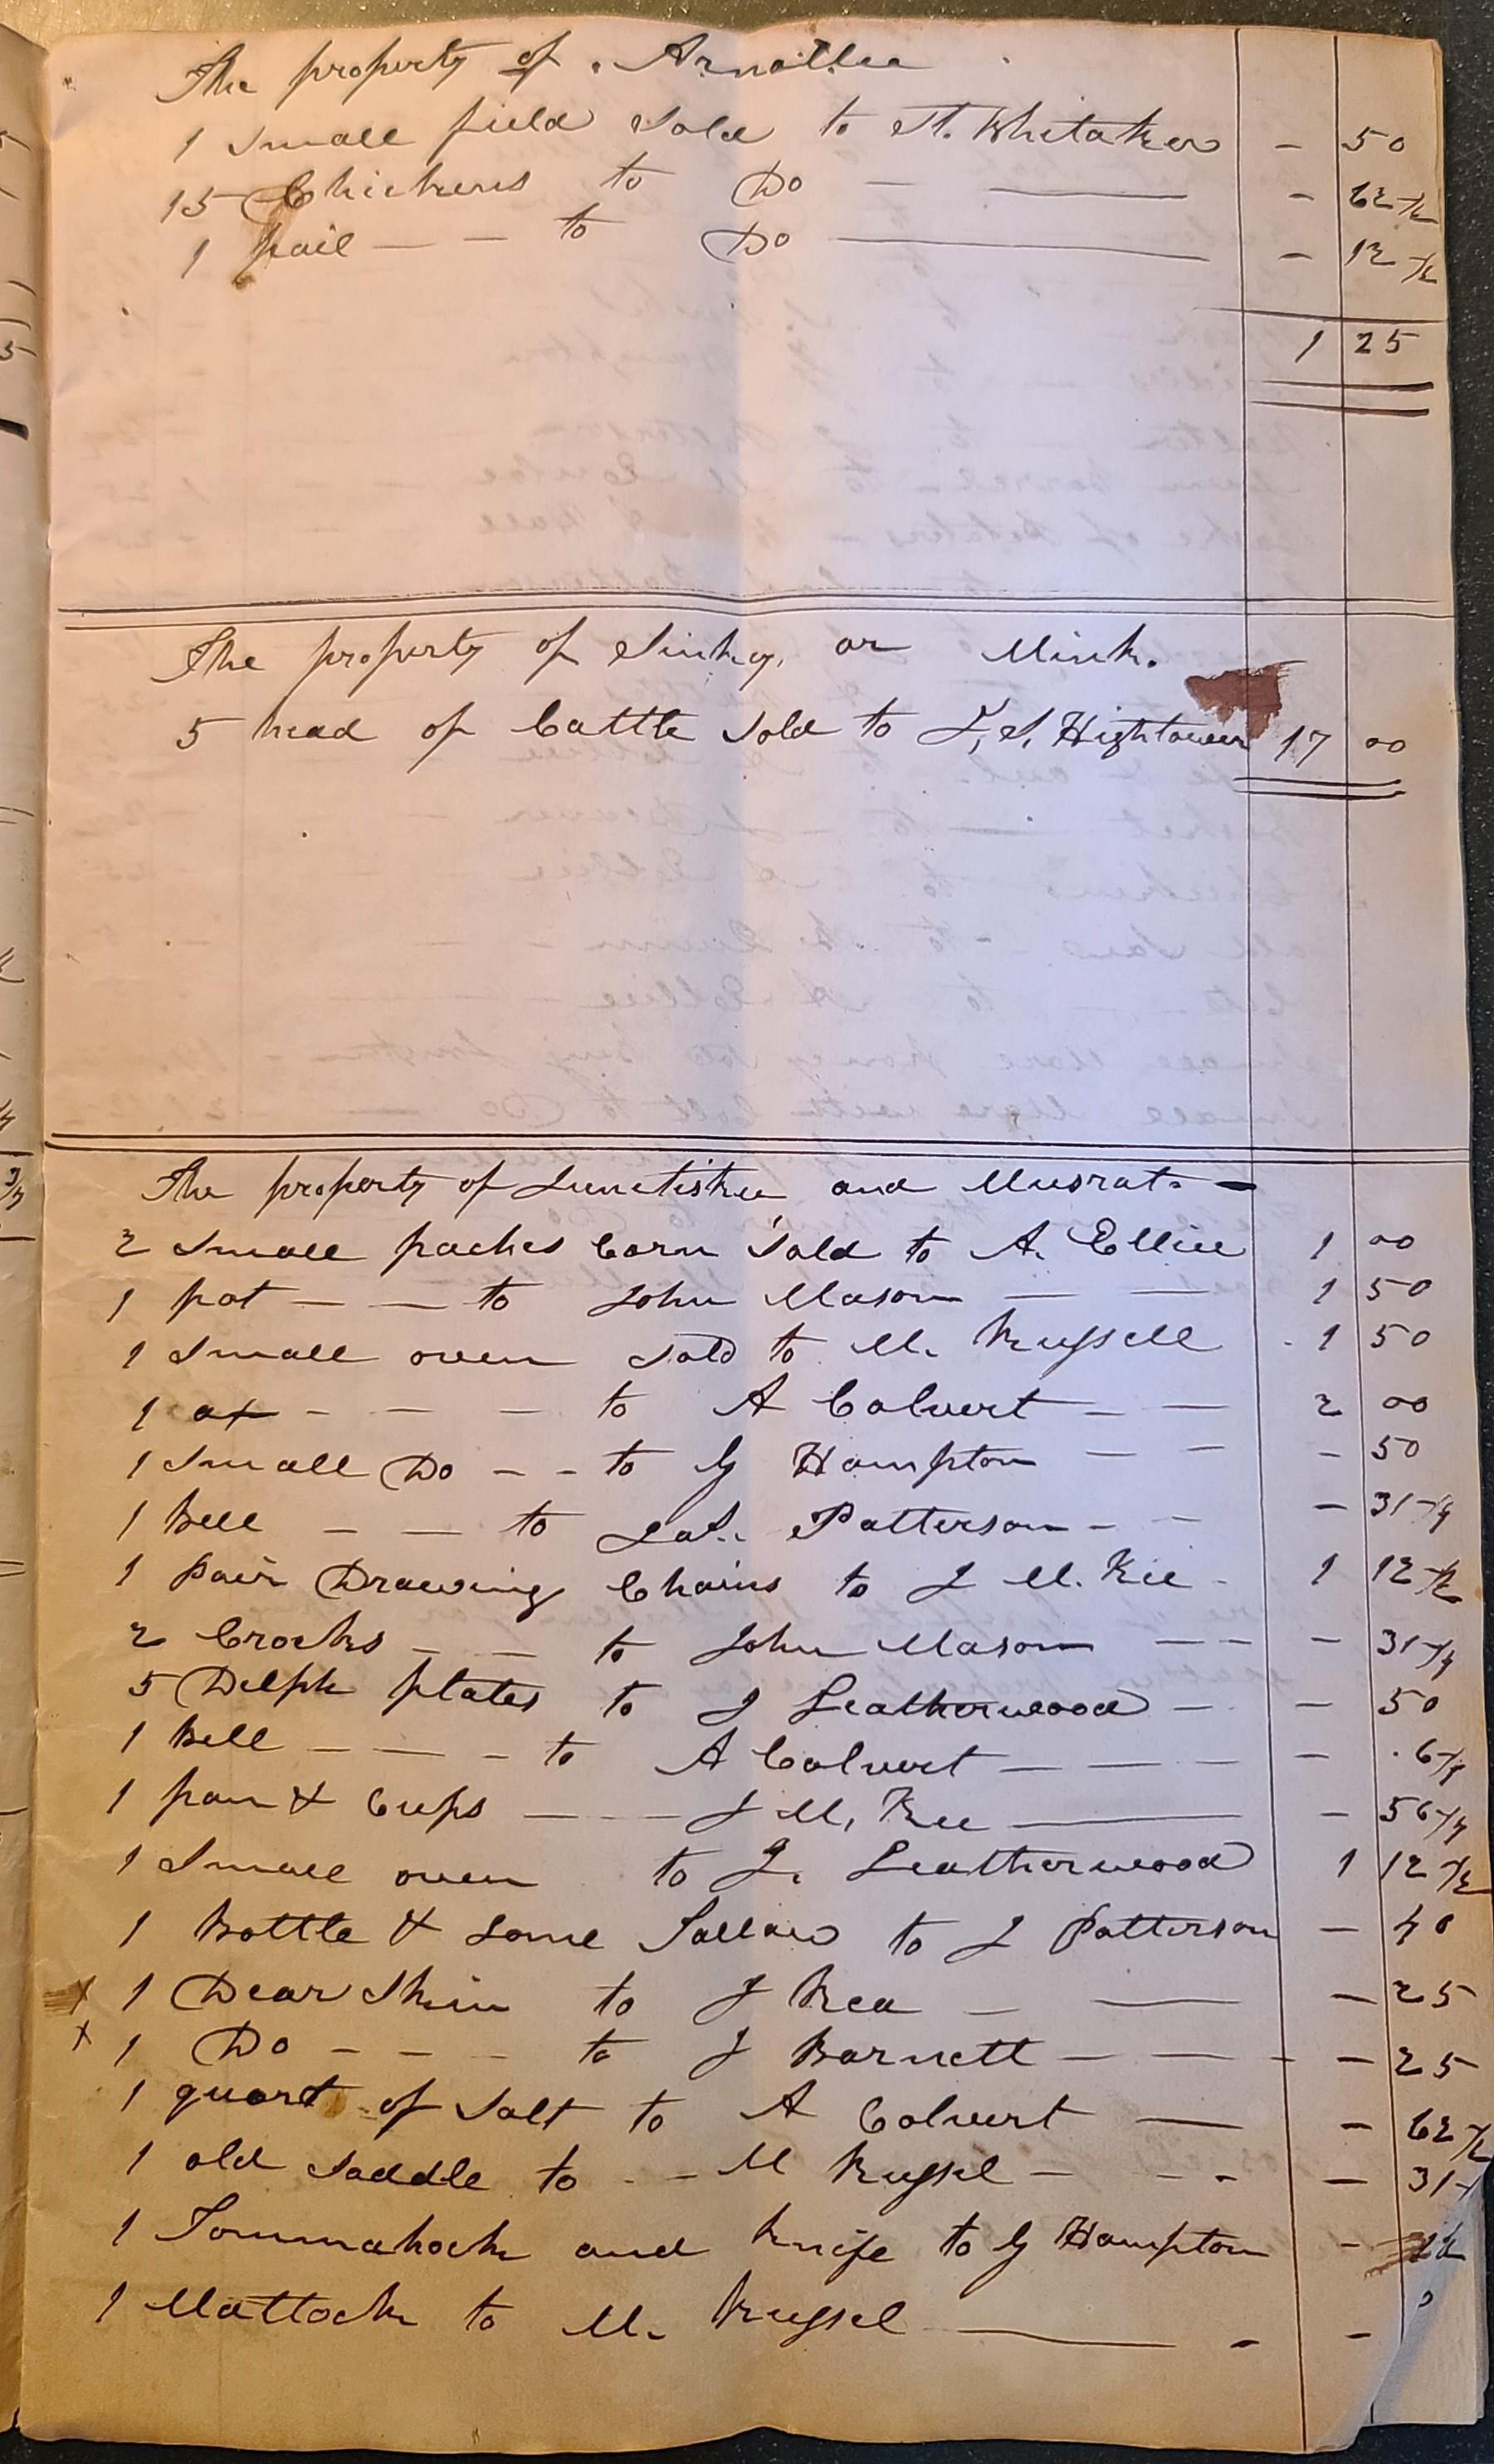 The property of Arnatlee
1 Small field Sold to St. Whitaker - 50
15 Chickens to Do - - 62 1/2
1 pail - - to Do - 12 1/2
1 25
The property of Sinkey, or Mink.
5 head of Cattle Sold to J, S, Hightower 17 00
The property of and Musrat -
2 Small paches Corn Sold to A. Ellice 1 00
1 pot - - to John Mason - - 1 50
1 Small oven Sold to M. Russell 1 50
1 ax - - - - to A Calvert - - 2 00
1 Small Do - - to G Hampton - - - 50
1 Bell - - to Patterson - - - 31 1/4
1 pair Drawing Chains to J M. Kee - 1 12 1/2
2 Crocks - - to John Mason - - - 31 1/4
5 Delph plates to J Leatherwood - - 50
1 Bell - - - to A Calvert - - - - 6 1/4
1 pan & Cups - - - J M, Kee - - 56 1/4
1 Small oven to J. Leatherwood 1 12 1/2
1 Bottle & Some Tallow to J Patterson - 40
x 1 Dear Skin to J Rea - - - 25
x 1 Do - - - to J Barnett - - - - 25
1 quart of Salt to A Calvert - - 62 1/2
1 old Saddle to - - M Russel - - - - 31
1 Tommahock and knife to G Hampton -
1 Mattock to M. Russel - - -